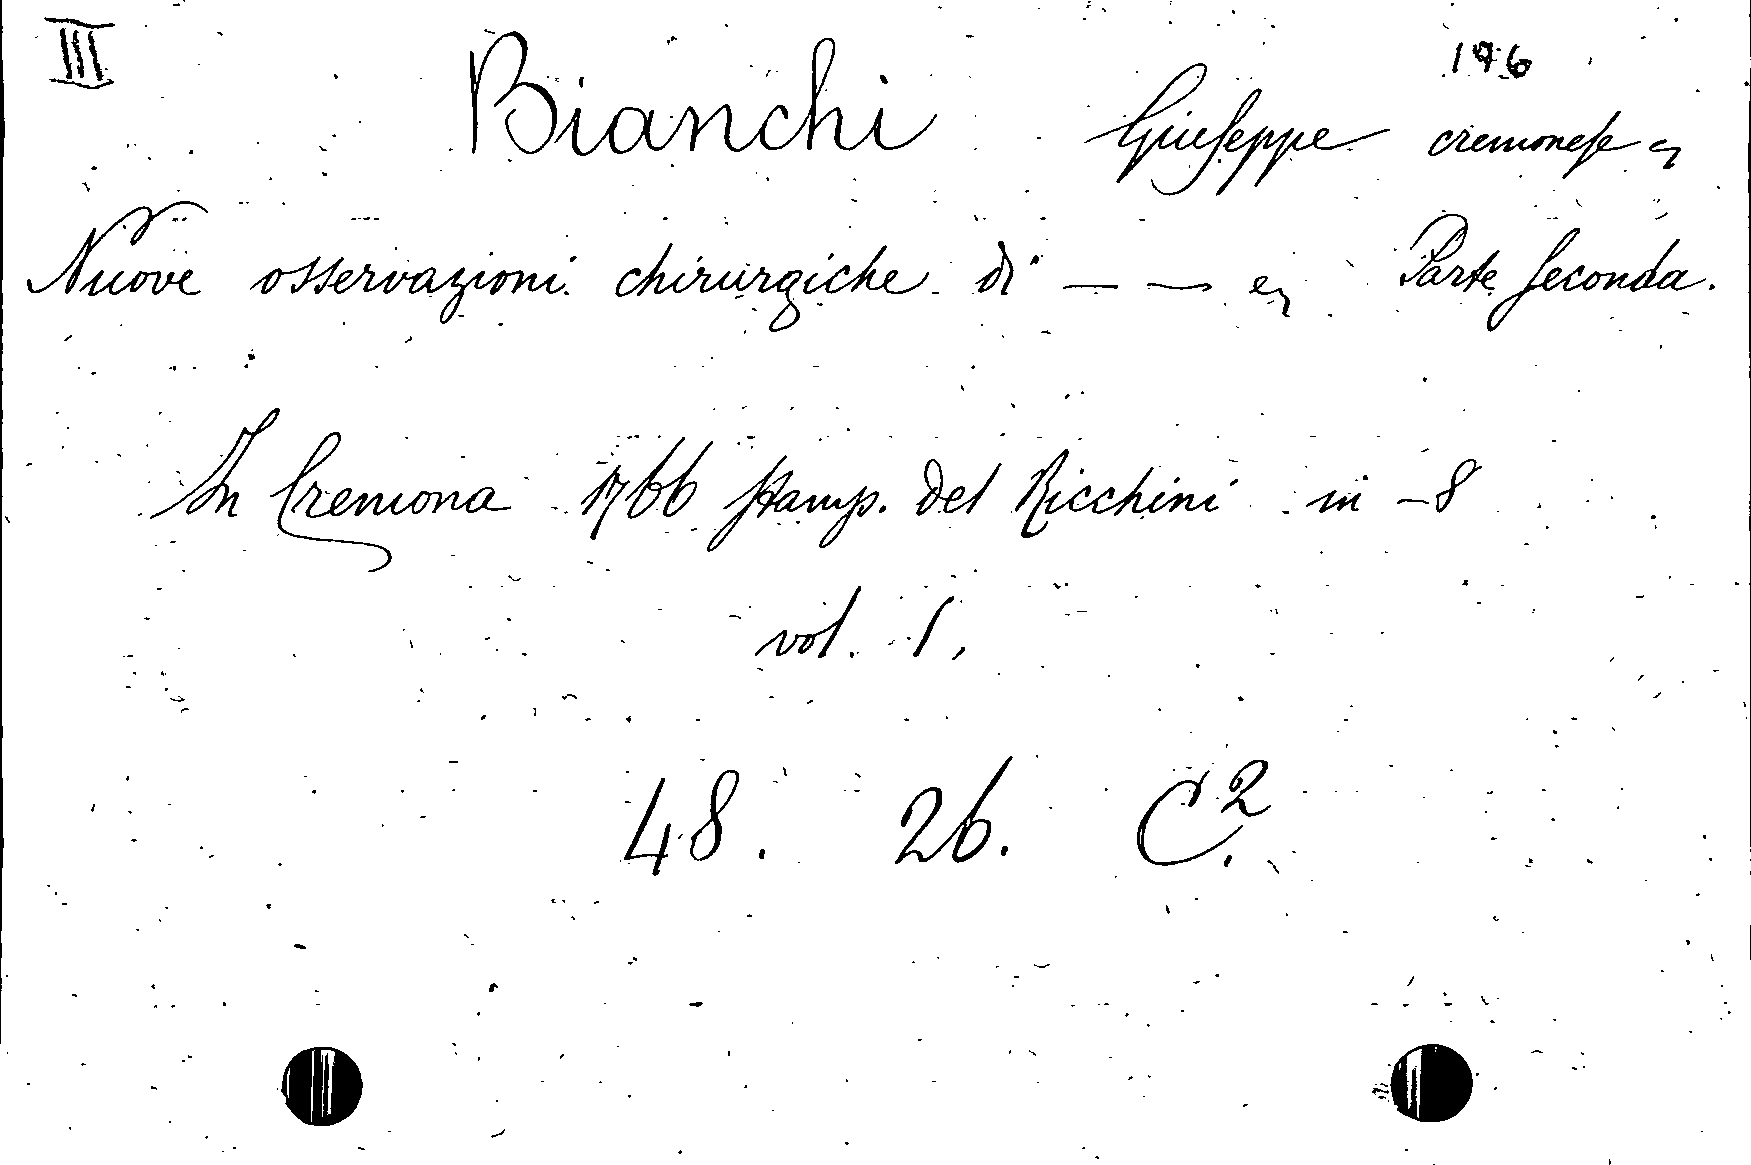 III 176
Bianchi Giuseppe cremonese
Nuove osservazioni chirurgiche di — — Parte seconda.
In Cremona 1766 stamp. del Ricchini in -8
vol. 1.
48. 26. C.²